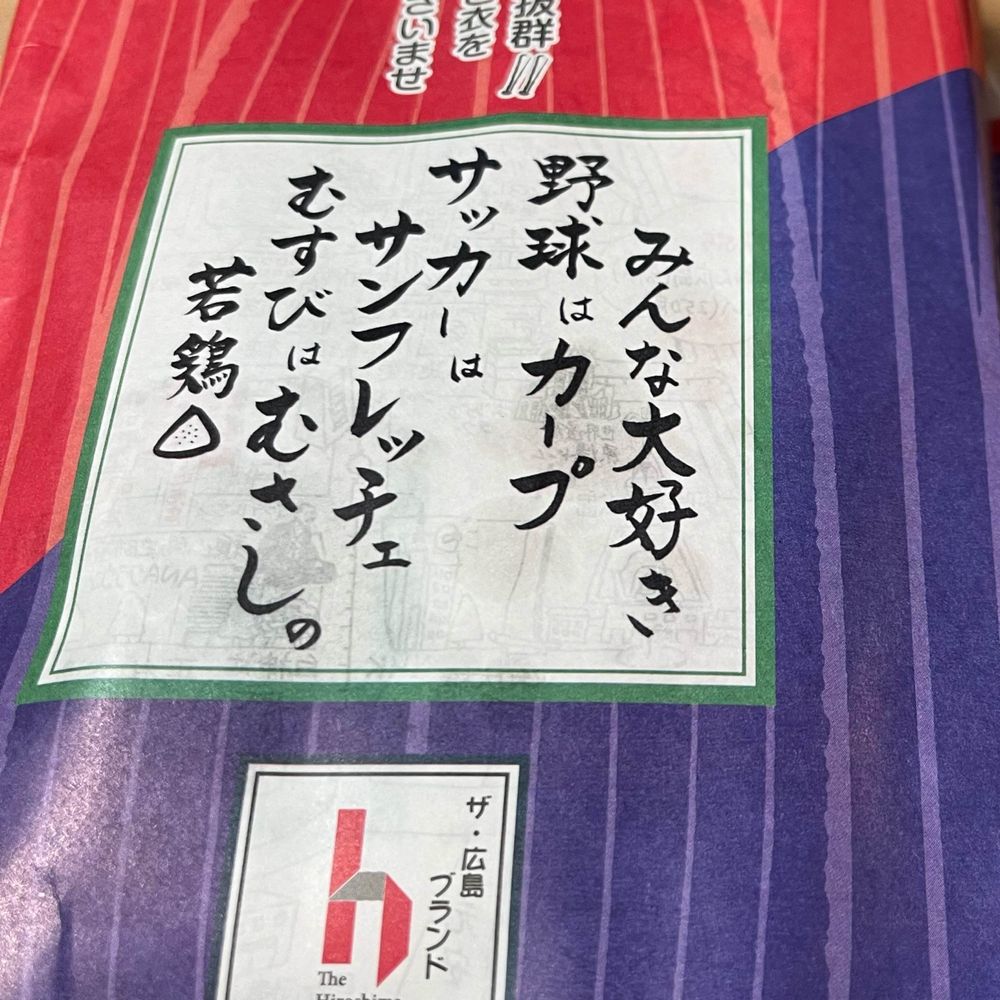 抜群!!
衣を
さいませ
みんな大好き
野球はカープ
サッカーは
サンフレッチェ
むすびはむさしの
若鶏
ザ・広島
ブランド
The
Hiroshima